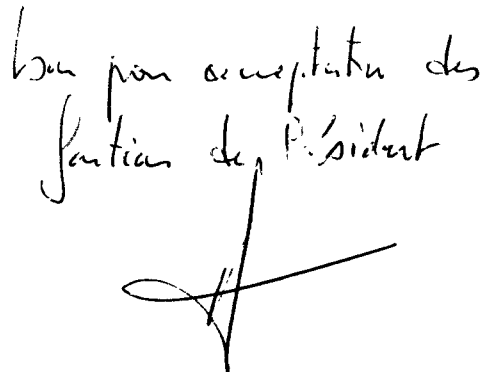 Bon pour acceptation des
fonctions de Président